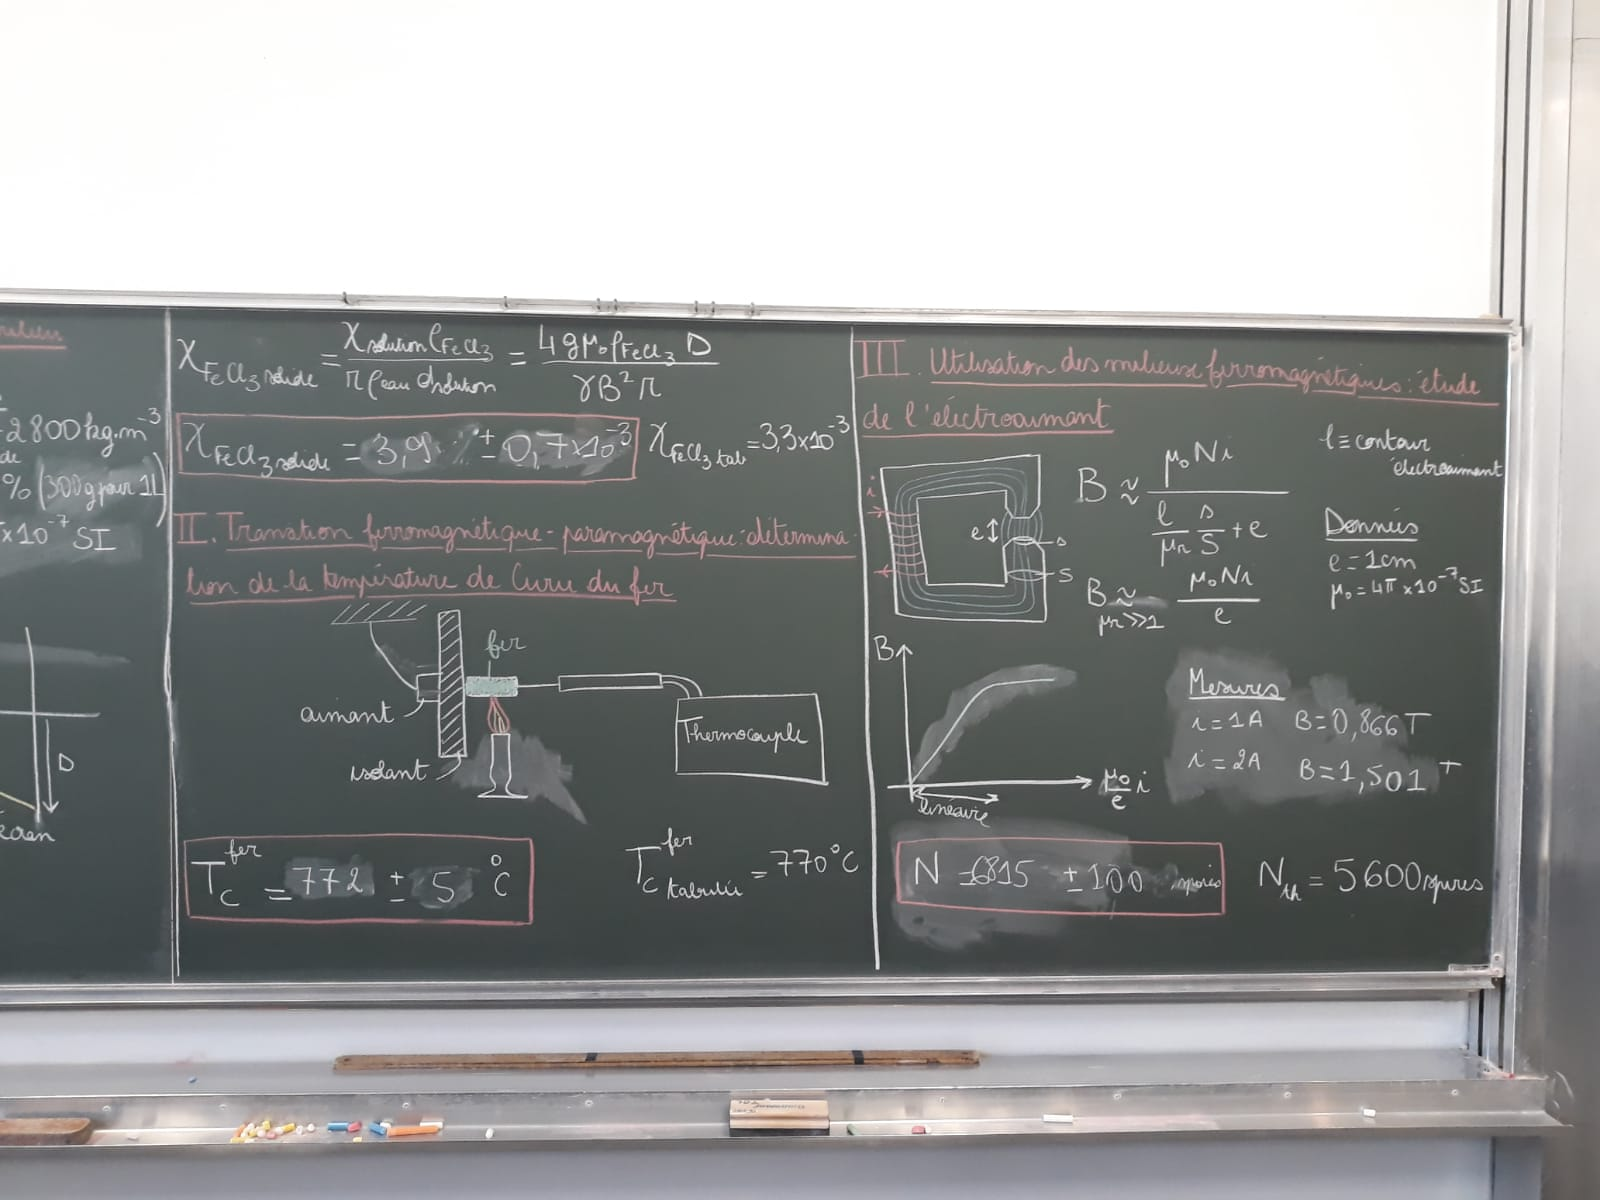 2800 kg.m⁻³
% (300g pour 1L)
×10⁻⁷ SI
D
χ_FeCl₃ solide = χ_solution ρ_FeCl₃ / (r ρ_eau solution) = 4gμ₀ρ_FeCl₃ D / (γB²r)
χ_FeCl₃ solide = 3,9 ± 0,7×10⁻³
χ_FeCl₃ tab = 3,3×10⁻³
II. Transition ferromagnétique - paramagnétique : détermina-
tion de la température de Curie du fer
fer
aimant
isolant
Thermocouple
T_C^fer = 772 ± 5 °C
T_C tabulée^fer = 770°C
III. Utilisation des milieux ferromagnétiques : étude
de l'électroaimant
i
e
s
S
B ≈ μ₀Ni / (ℓ/μr s/S + e)
B ≈ μ₀Ni / e
μr>>1
ℓ ≡ contour
électroaimant
Données
e = 1cm
μ₀ = 4π×10⁻⁷ SI
B
μ₀/e i
linéaire
Mesures
i = 1A B = 0,866 T
i = 2A B = 1,501 T
N = 6815 ± 100 spires
N_th = 5600 spires